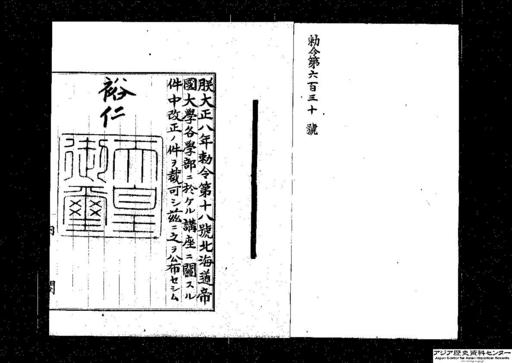 勅令第六百三十號
朕大正八年勅令第十八號北海道帝
國大學各學部ニ於ケル講座ニ關スル
件中改正ノ件ヲ裁可シ茲ニ之ヲ公布セシム
裕仁
天皇
御璽
内閣
アジア歴史資料センター
Japan Center for Asian Historical Records